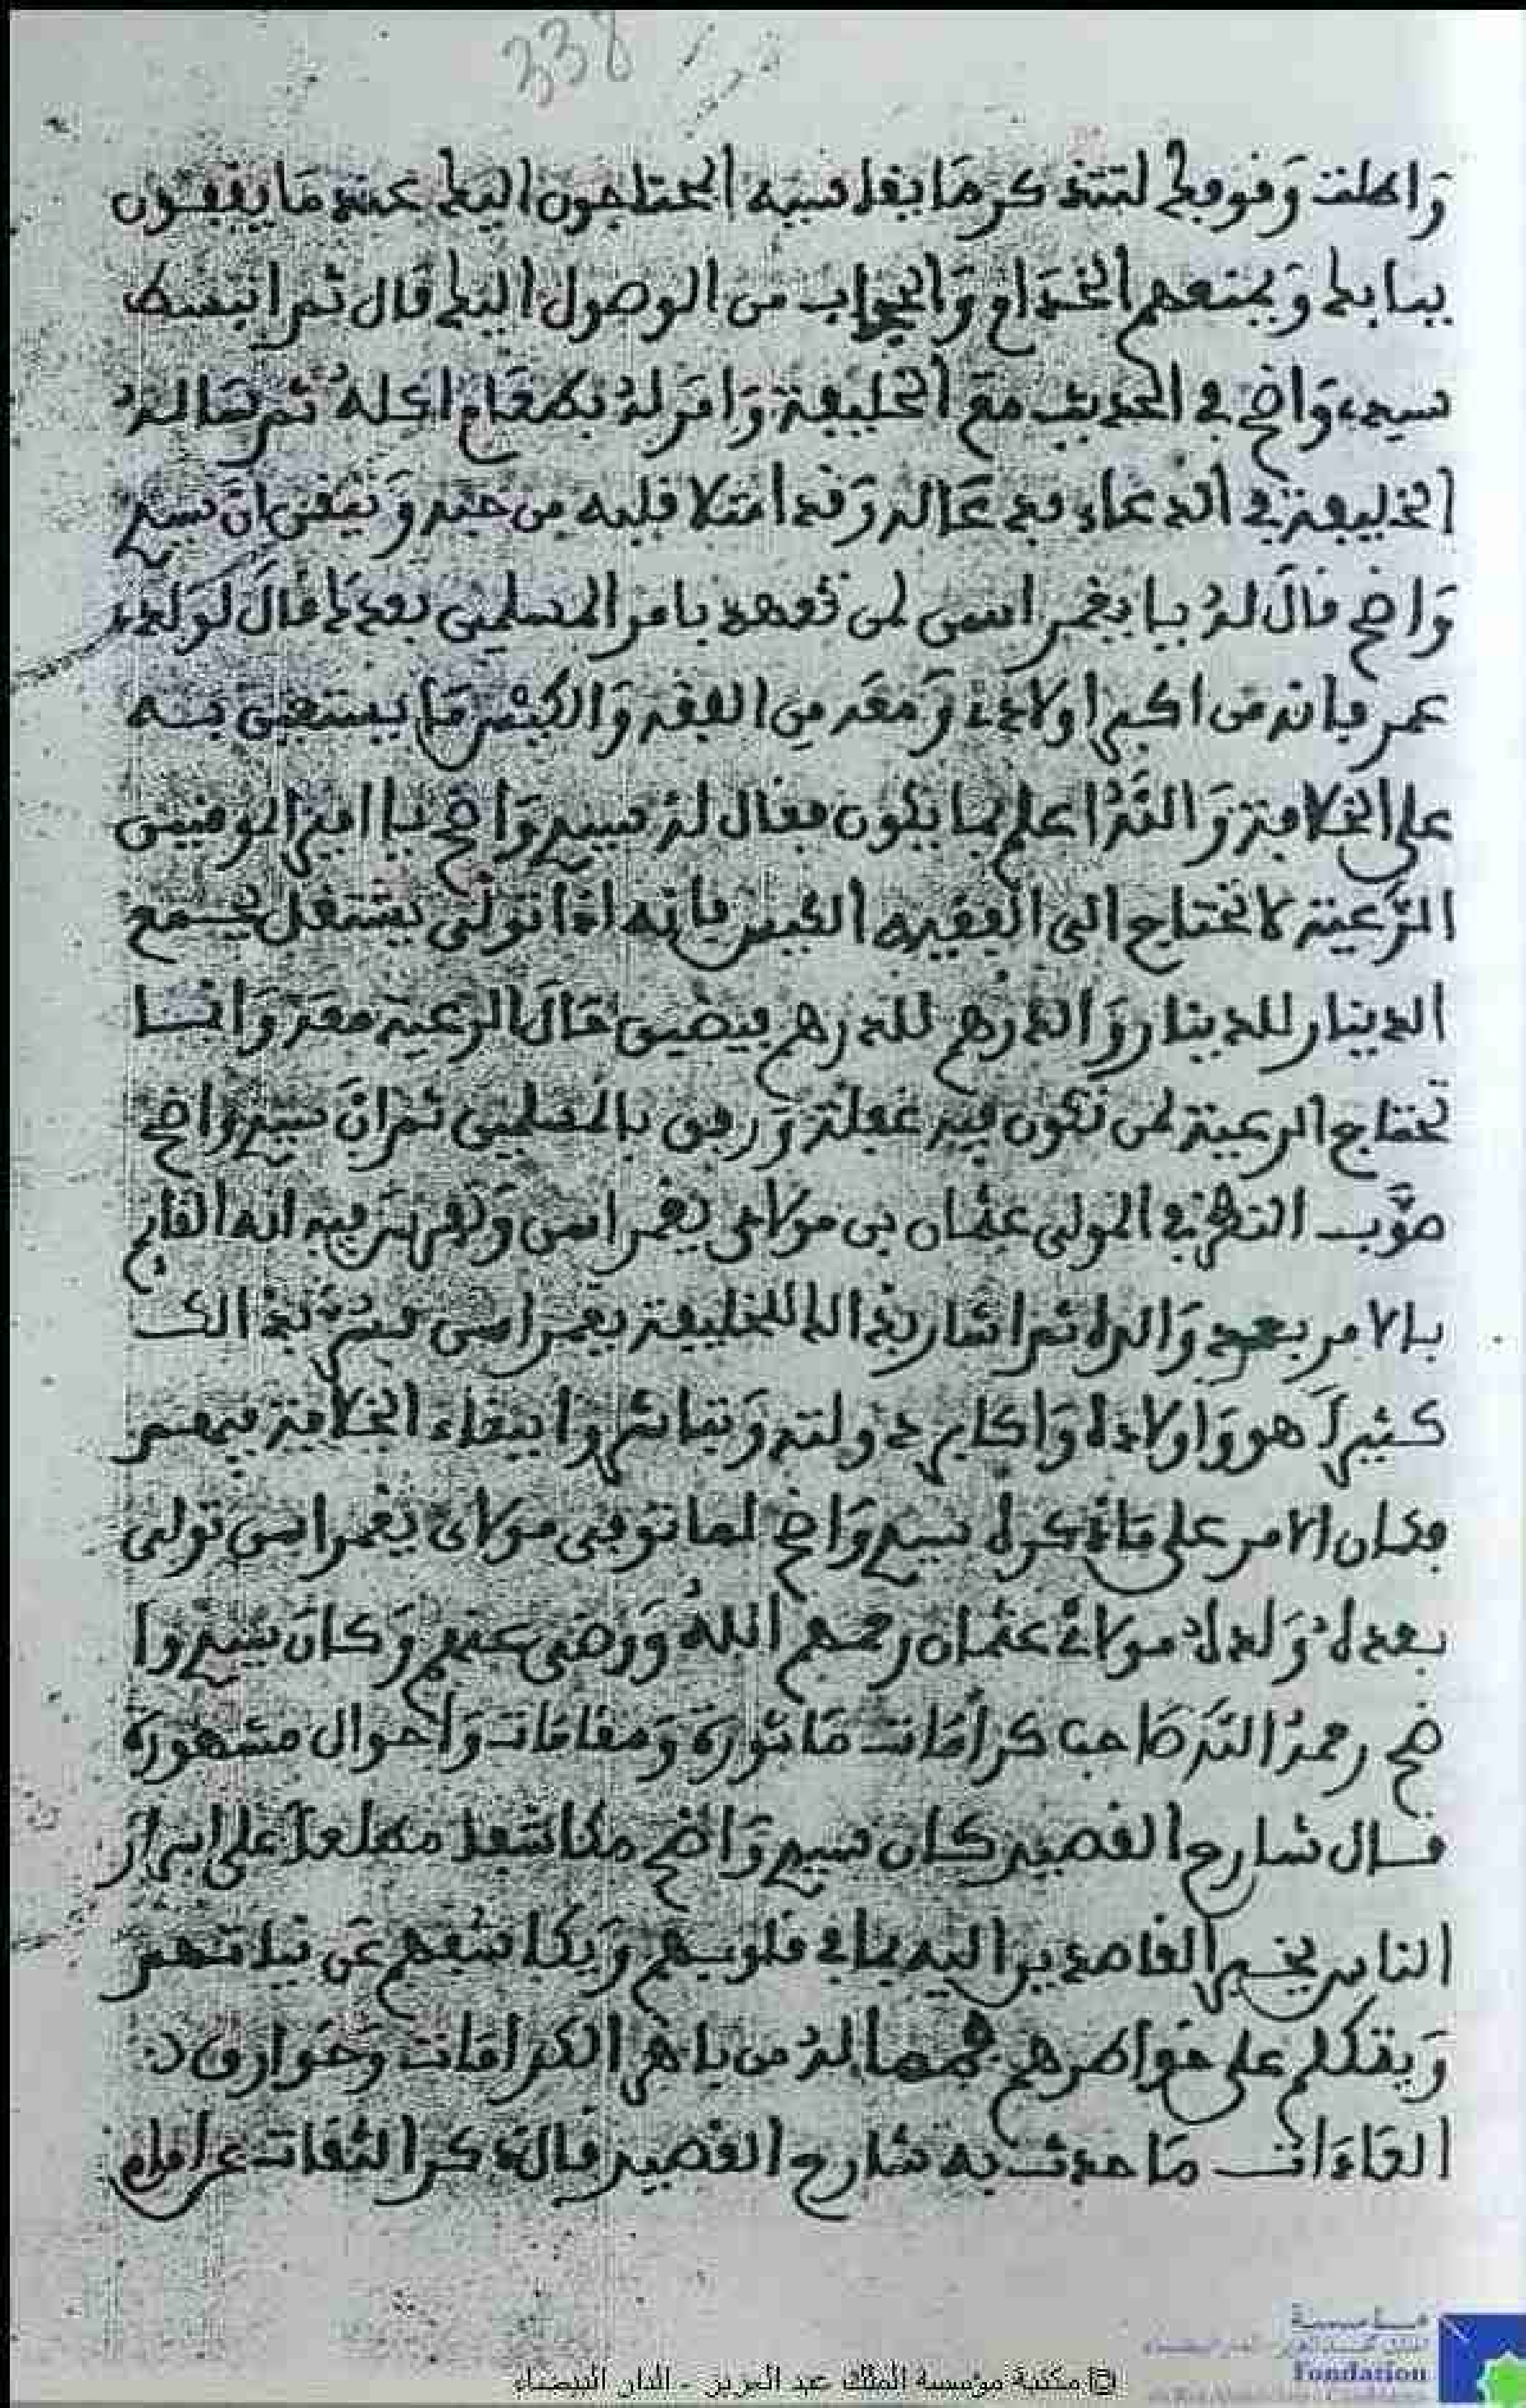 338
وَاطلت وَفوفِك لتتذكر مَا يفاسيه المحتاجون اليك عند مَا يقفون
ببابك وَيمنعهم الخدام وَالحجاب من الوصول اليك قال ثم انبسط
سيدي وَاضح في الحديث مع الخليفة وَامر له بطعام اكله ثم سَاله
الخليفة في الدعاء فدعَا له وَقد امتلا قلبه من حبه وَتيقن ان سيدي
وَاضح قال له يا يغمراسن لمن تعهد بامر المسلمين بعدك قال لولدي
عمر فانه من اكبر اولادي وَمعه من الفقه وَالكبر مَا يستعين به
على الخلافة وَالله اعلم بما يكون فقال له سيدي وَاضح يا امير المومنين
الرَّعية لا تحتاج الى الفقيه الكبير فانه اذا تولى يشتغل بجمع
الدينار للدينار وَالدرهم للدرهم فيضيق حَال الرعية معه وَانما
تحتاج الرعية لمن تكون فيه غفلة وَرفق بالمسلمين ثم ان سيدي واضح
صَوَّب النظر في المولى عثمان بن مولاي يغمراسن وَتفرس فيه انه القايم
بالامر بعد والده ثم اشار بذالك للخليفة يغمراسن فسره ذالك
كثيراً هو وَاولاده وَاكابر دولته وَتباشروا ببقاء الخلافة فيهم
فكان الامر على مَا ذكره سيدي وَاضح لما توفى مولاي يغمراسن تولى
بعده وَلده مولاي عثمان رحمهم اللهُ وَرضى عنهم وَكان سيدي وا
ضح رحمه الله صَاحب كرامَات مَاثورة وَمقامات وَاحوال مشهورة
قال شارح القصيد كان سيدي وَاضح مكاشفا مطلعا على اسرار
الناس يخبر القاصدين اليه بما في قلوبهم وَيكاشفهم عن نياتهم
وَيتكلم على خواطرهم فمما له من باهر الكرامات وَخوارق
العادَات مَا حدث به شارح القصيد قال ذكر الثقات عن اهله
مكتبة مؤسسة الملك عبد العزيز - الدار البيضاء
Fondation